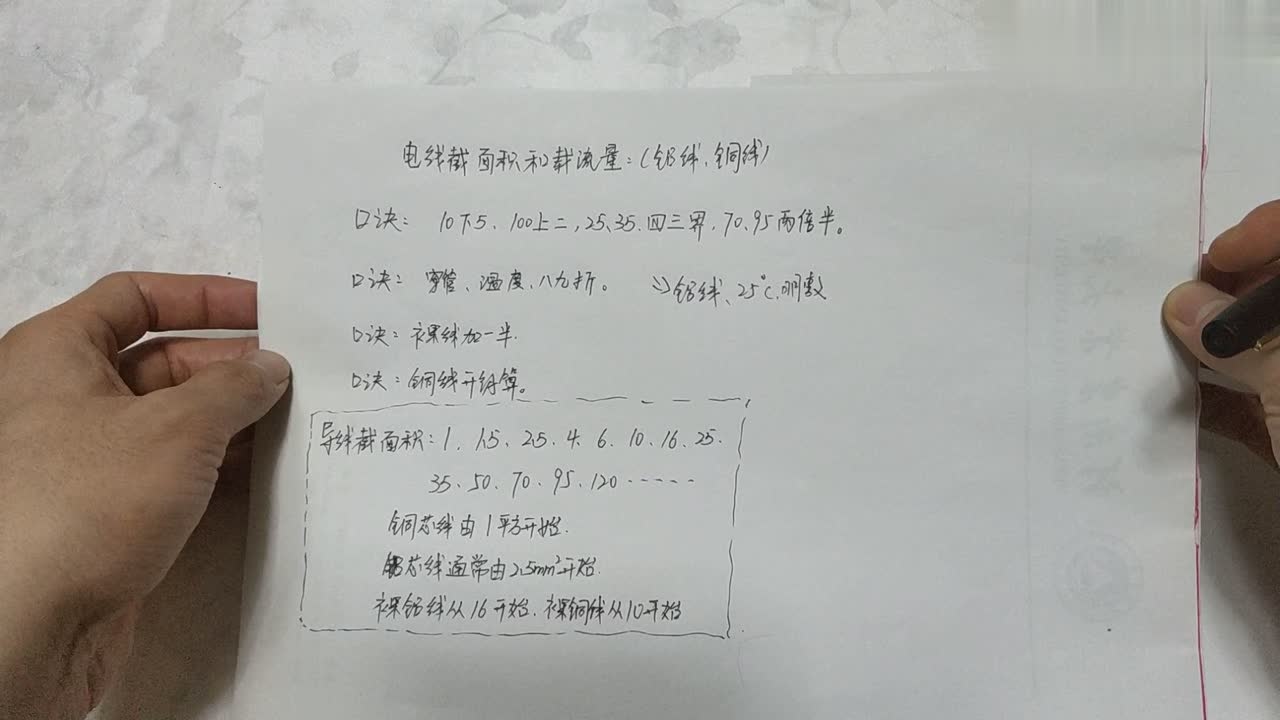 电线截面积和载流量：（铝线、铜线）
口诀： 10下5、100上二，25、35、四三界，70、95两倍半。
口诀： 穿管、温度、八九折。 ⇒铝线、25℃、明敷
口诀：裸线加一半.
口诀：铜线升级算。
导线截面积：1、1.5、2.5、4、6、10、16、25、
35、50、70、95、120 -----
铜芯线由1平方开始.
铝芯线通常由2.5mm²开始.
裸铝线从16开始、裸铜线从10开始